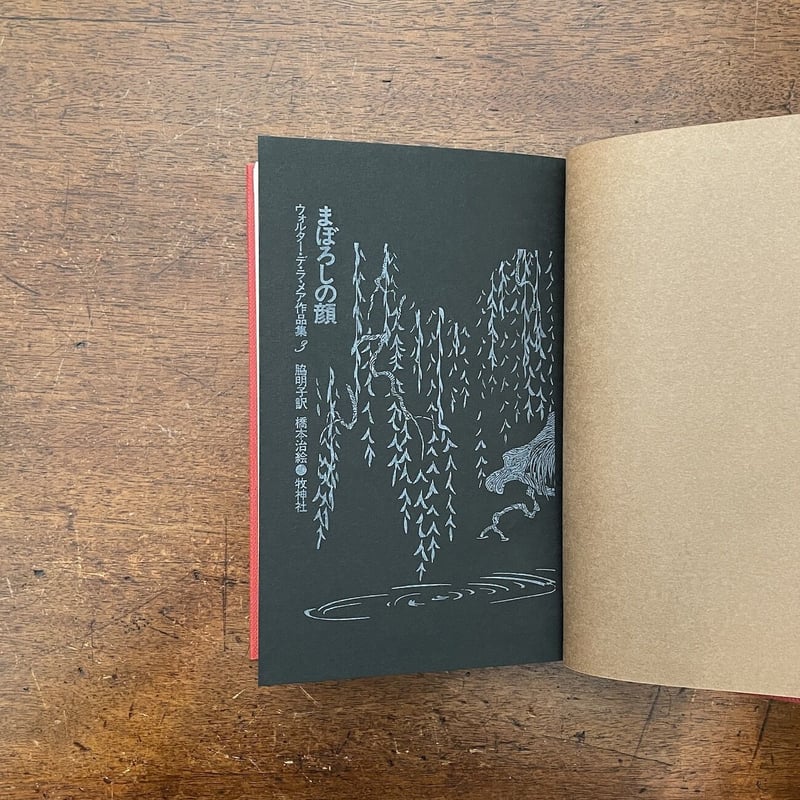 まぼろしの顔
ウォルター・デ・ラ・メア作品集 3
脇明子訳 橋本治絵 牧神社